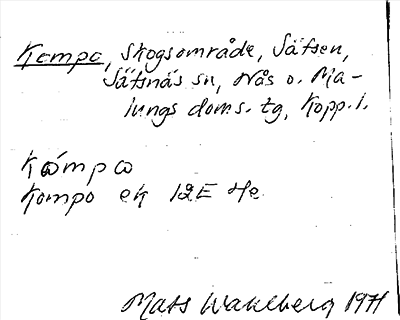 Kompo, Skogsområde, Sätsen,
Sätsnäs sn, Nås o. Ma-
lungs doms. tg, Kopp. l.
Kómpω
Kompo ek 12E 4e
Mats Wahlberg 1971